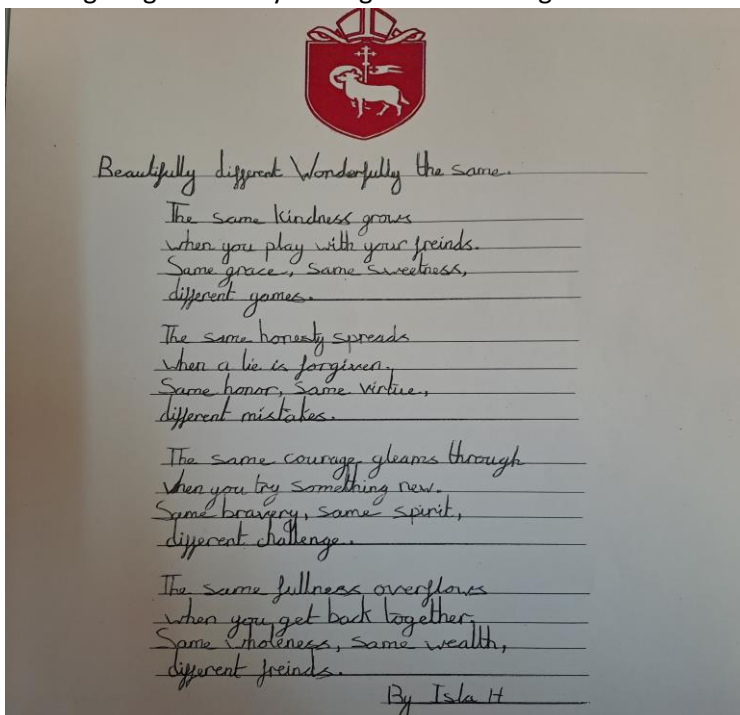 Beautifully different Wonderfully the same.
The same kindness grows
when you play with your freinds.
Same grace, same sweetness,
different games.
The same honesty spreads
when a lie is forgiven.
Same honor, same virtue,
different mistakes.
The same courage gleams through
when you try something new.
Same bravery, same spirit,
different challenge.
The same fullness overflows
when you get back together.
Same wholeness, same wealth,
different freinds.
By Isla H